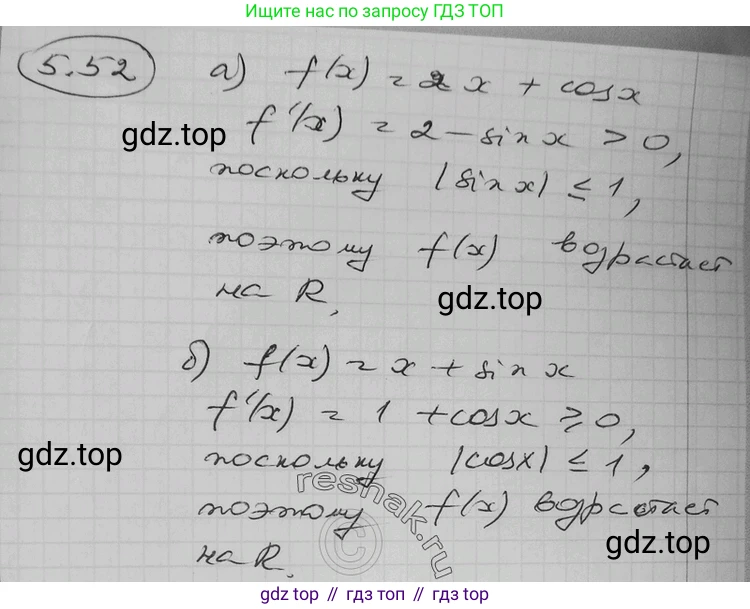 Ищите нас по запросу ГДЗ ТОП
5.52 а) f(x) = 2x + cosx
f'(x) = 2 - sin x > 0,
gdz.top
поскольку |sin x| ≤ 1,
поэтому f(x) возрастает
на R,
gdz.top
б) f(x) = x + sin x
f'(x) = 1 + cosx ≥ 0,
gdz.top
поскольку |cosx| ≤ 1,
поэтому f(x) возрастает
на R.
reshak.ru
©
gdz.top
gdz.top // гдз топ // gdz.top